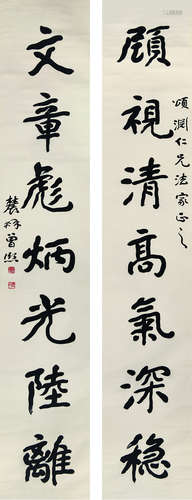 頌淵仁兄法家正之
顧視清高氣深穩
文章彪炳光陸離
農髯曾熙